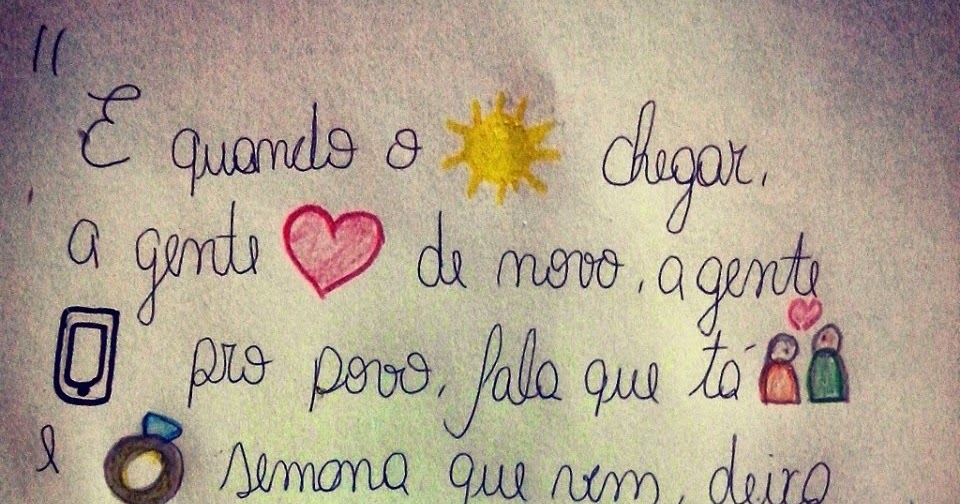 "
E quando o chegar,
a gente de novo, a gente
pro povo, fala que tá
e semana que vem, deixa